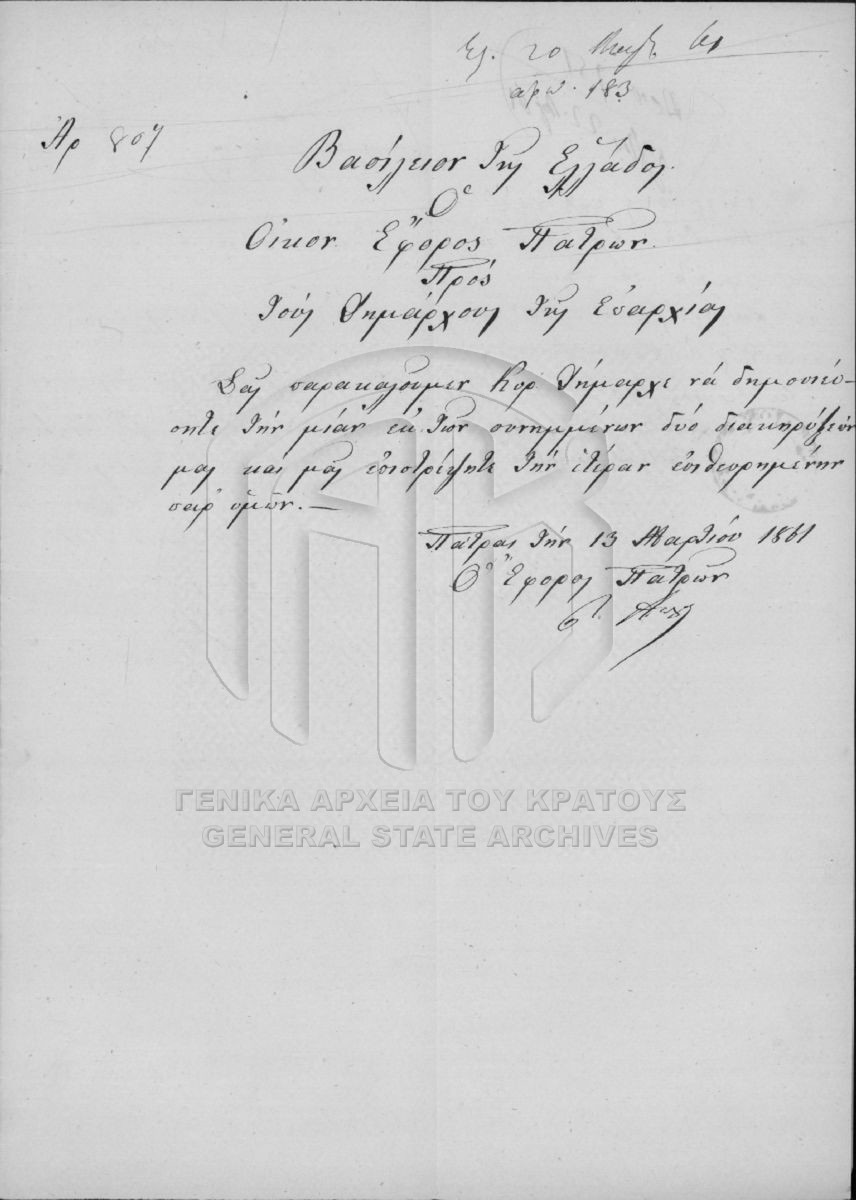 Ἐλ. 20 Μαρτ. 61
αρθ. 183
Ἀρ 807
Βασίλειον τῆς Ἑλλάδος
Ὁ
Οἰκον. Ἔφορος Πατρῶν
Πρός
τούς Δημάρχους τῆς Ἐπαρχίας
Σᾶς παρακαλοῦμεν Κύρ. Δήμαρχε νά δημοσιεύ-
σητε τήν μίαν ἐκ τῶν συνημμένων δύο διακηρύξεών
μας καί μᾶς ἐπιστρέψητε τήν ἑτέραν ἐπιθεωρημένην
παρ' ὑμῶν.—
Πάτραι τήν 13 Μαρτίου 1861
Ὁ Ἔφορος Πατρῶν
ΓΕΝΙΚΑ ΑΡΧΕΙΑ ΤΟΥ ΚΡΑΤΟΥΣ
GENERAL STATE ARCHIVES